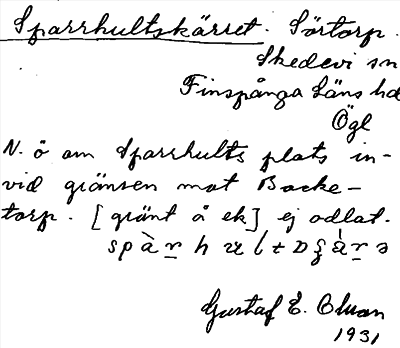 Sparrhultskärret. Sörtorp.
Skedevi sn
Finspånga Läns hd
Ögl
N. ö om Sparrhults plats in-
vid gränsen mot Backe-
torp. [gränt å ek] ej odlat.
Gustaf E. Olman
1931